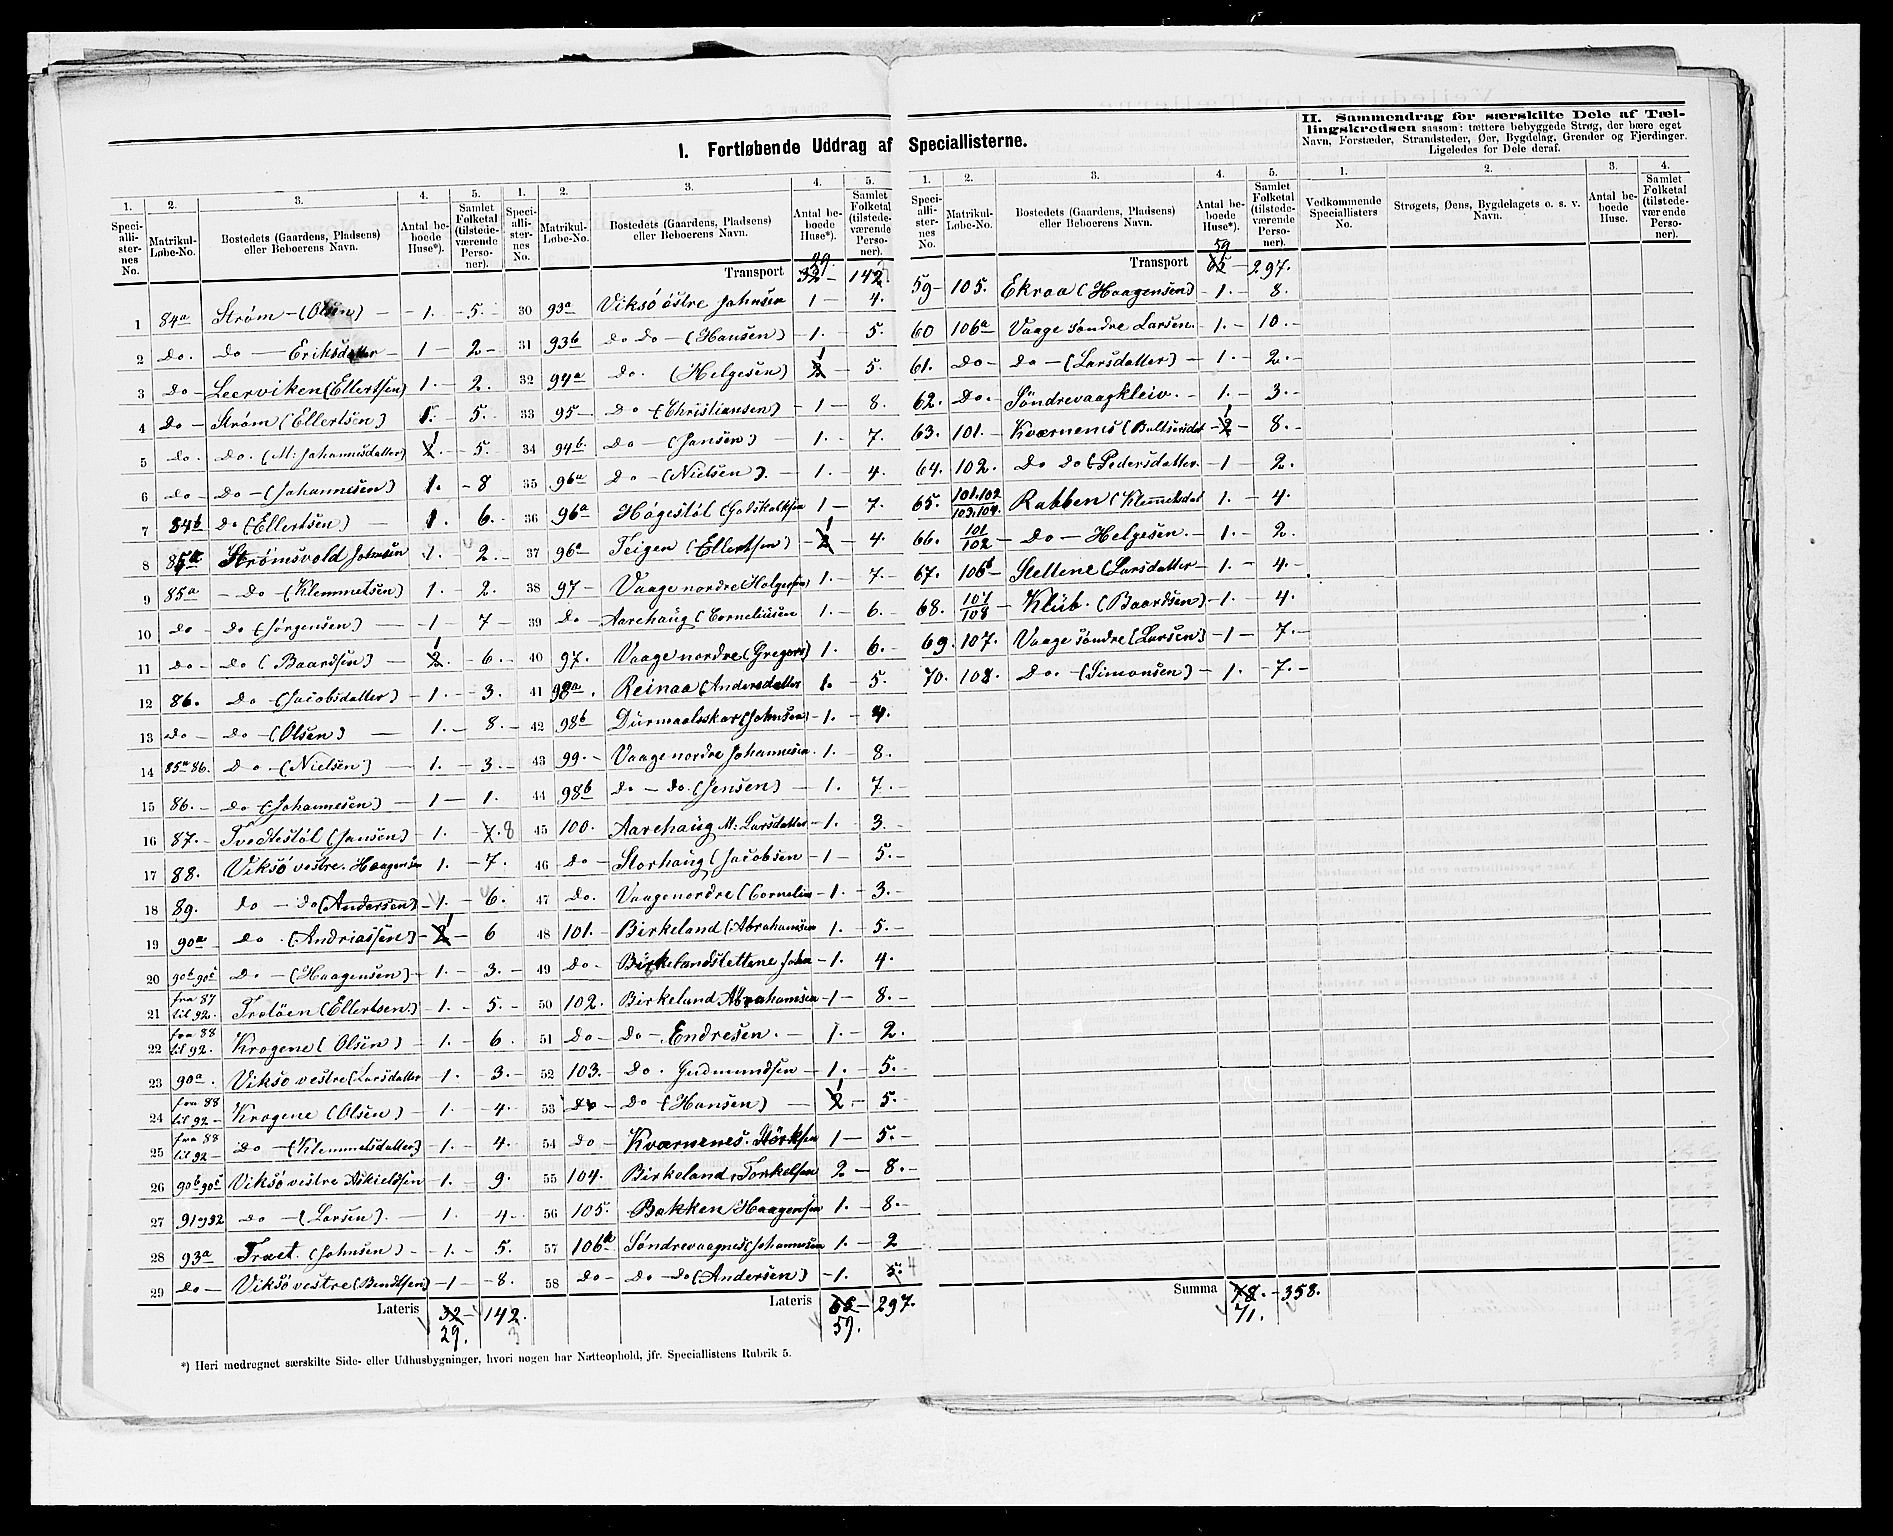 I. Fortløbende Uddrag af Speciallisterne.
II. Sammendrag for særskilte Dele af Tællingskredsen saasom: tættere bebyggede Strøg, der bære eget
Navn, Forstæder, Strandsteder, Øer, Bygdelag, Grender og Fjerdinger.
Ligeledes for Dele deraf.
1. 2. 3. 4. 5.
Speciallisternes No. Matrikul-Løbe-No. Bostedets (Gaardens, Pladsens) eller Beboerens Navn. Antal beboede Huse*). Samlet Folketal (tilstedeværende Personer).
1 84a Strøm - (Olsen) - 1. - 5.
2 Do. Do - Eriksdatter - 1 - 2 -
3 Do - Leerviken (Ellertsen) 1. - 2.
4 Do - Strøm (Ellertsen) 1. - 5.
5 Do. Do. (M. Johannisdatter) 2. 1 - 5.
6 Do - Do - (Johannesen) 1. - 8
7 84b Do (Ellertsen) - 1. 6.
8 85a Strømsvold Johnsen 1. - 2.
9 85a - Do - (Klemmetsen) 1. - 2.
10 Do - Do (Jørgensen) - 1 7 -
11 Do - Do (Baardsen) - 2. 1 - 6.
12 86. Do - (Jacobsdatter) - 1. - 3.
13 Do - Do - (Olsen) - 1. - 8. -
14 85a 86. Do - (Nielsen) - 1. - 3. -
15 86. - Do (Johannesen) - 1 - 1.
16 87. - Tvedtestøl (Jansen) 1. - 7. 8
17 88. Viksø vestre. Haagensen 1. - 7.
18 89. Do - Do (Andersen) - 1. - 6.
19 90a - Do. (Andriassen) - 2 1 - 6
20 90b 90c Do - (Haagensen) - 1. - 3. -
21 fra 87 til 92. Troløen (Ellertsen) - 1. - 5. -
22 fra 88 til 92. Krogene (Olsen) - 1. - 6.
23 90a. Viksø vestre (Larsdatter - 1. - 3. -
24 fra 88 til 92 - Krogene (Olsen) - 1. - 4. -
25 fra 88 til 92 - Do - (Klemmetsdatter) - 1. - 4.
26 90b 90c Viksø vestre Askieldsen - 1. - 9.
27 91 og 92 Do - (Larsen). - 1. - 4 -
28 93a Træet. (Johnsen) - 1. - 5.
29 Do - Viksø vestre (Bendtsen) - 1 - 8.
Lateris 32 - 142.
29. 3
1. 2. 3. 4. 5.
Speciallisternes No. Matrikul-Løbe-No. Bostedets (Gaardens, Pladsens) eller Beboerens Navn. Antal beboede Huse*). Samlet Folketal (tilstedeværende Personer).
Transport 29. 32 - 142.
30 93a Viksø östre Johnsen 1 - 4.
31 93b Do Do - (Hansen) - 1. - 5.
32 94a Do. (Helgesen) 2 1 - 5.
33 95 - Do - (Christiansen) - 1 - 8.
34 94b. Do - (Jansen) - 1. - 7.
35 96a Do - (Nielsen). - 1. - 4.
36 96a Høgestøl (Godskalksen 1 - 7.
37 96a Teigen (Ellertsen) - 2 1 - 4.
38 97 - Vaage nordre (Helgesen) 1. - 7. -
39 Do Aarehaug (Corneliusen 1. - 6. -
40 97. Vaage nordre (Gregers) 1. 6. -
41 98a. Reinaa (Andersdatter 1. 5.
42 98b Durmaalsskar (Johnsen) - 1. - 4.
43 99. - Vaage nordre Johannesen. 1. - 8.
44 98b Do - Do. (Jensen) - 1. 7. -
45 100. Aarehaug M. Larsdatter - 1. - 3. -
46 Do - Storhaug (Jacobsen - 1 - 5. -
47 Do. Vaage nordre (Cornelius - 1. - 3.
48 101. - Birkeland (Abrahamsen 1. - 5. -
49 Do - Birkelandstettene John - 1. 4.
50 102. Birkeland Abrahamsen - 1 - 8. -
51 Do - Do - Endresen. - 1. - 2.
52 103. - Do. Gudmundsen - 1. - 5. -
53 Do - Do (Hansen) - 2 1 - 5. -
54 Do - Kværnenes. Störksen 1 - 5. -
55 104. Birkeland, Torkelsen 2 - 8. -
56 105. Bakken Haagensen 1. - 8. -
57 106a Søndrevaagnes (Johannesen 1. - 2
58 Do - Do - Do (Andersen) - 1. 5. 4
Lateris 65 - 297.
59.
1. 2. 3. 4. 5.
Speciallisternes No. Matrikul-Løbe-No. Bostedets (Gaardens, Pladsens) eller Beboerens Navn. Antal beboede Huse*). Samlet Folketal (tilstedeværende Personer).
Transport 59 65 - 297.
59 - 105. Ekraa (Haagensen) - 1. - 8.
60 106a Vaage søndre Larsen. - 1. - 10. -
61. Do - Do - (Larsdatter) - 1. - 2.
62. Do - Søndrevaagkleiv. - 1. - 3.
63. 101. - Kværnenes (Baltsersdat - 2 1 - 8. -
64. 102. Do Do (Pedersdatter. - 1 - 2.
65. 101.102 103.104. Rabben (Klemetsdat 1. - 4.
66. 101 102 - Do - Helgesen. - 1. - 2.
67. 106b Slettene (Larsdatter - 1. - 4. -
68. 107 108 - Klüb. (Baardsen) - 1. - 4.
69. 107. Vaage søndre (Larsen) - 1 - 7. -
70. 108. Do. (Simonsen) - 1. - 7. -
Summa 78. - 358.
71.
1. 2. 3. 4.
Vedkommende Speciallisters No. Strøgets, Øens, Bygdelagets o. s. v. Navn. Antal beboede Huse. Samlet Folketal (tilstedeværende Personer).
*) Heri medregnet særskilte Side- eller Udhusbygninger, hvori nogen har Natteophold, jfr. Speciallistens Rubrik 5.